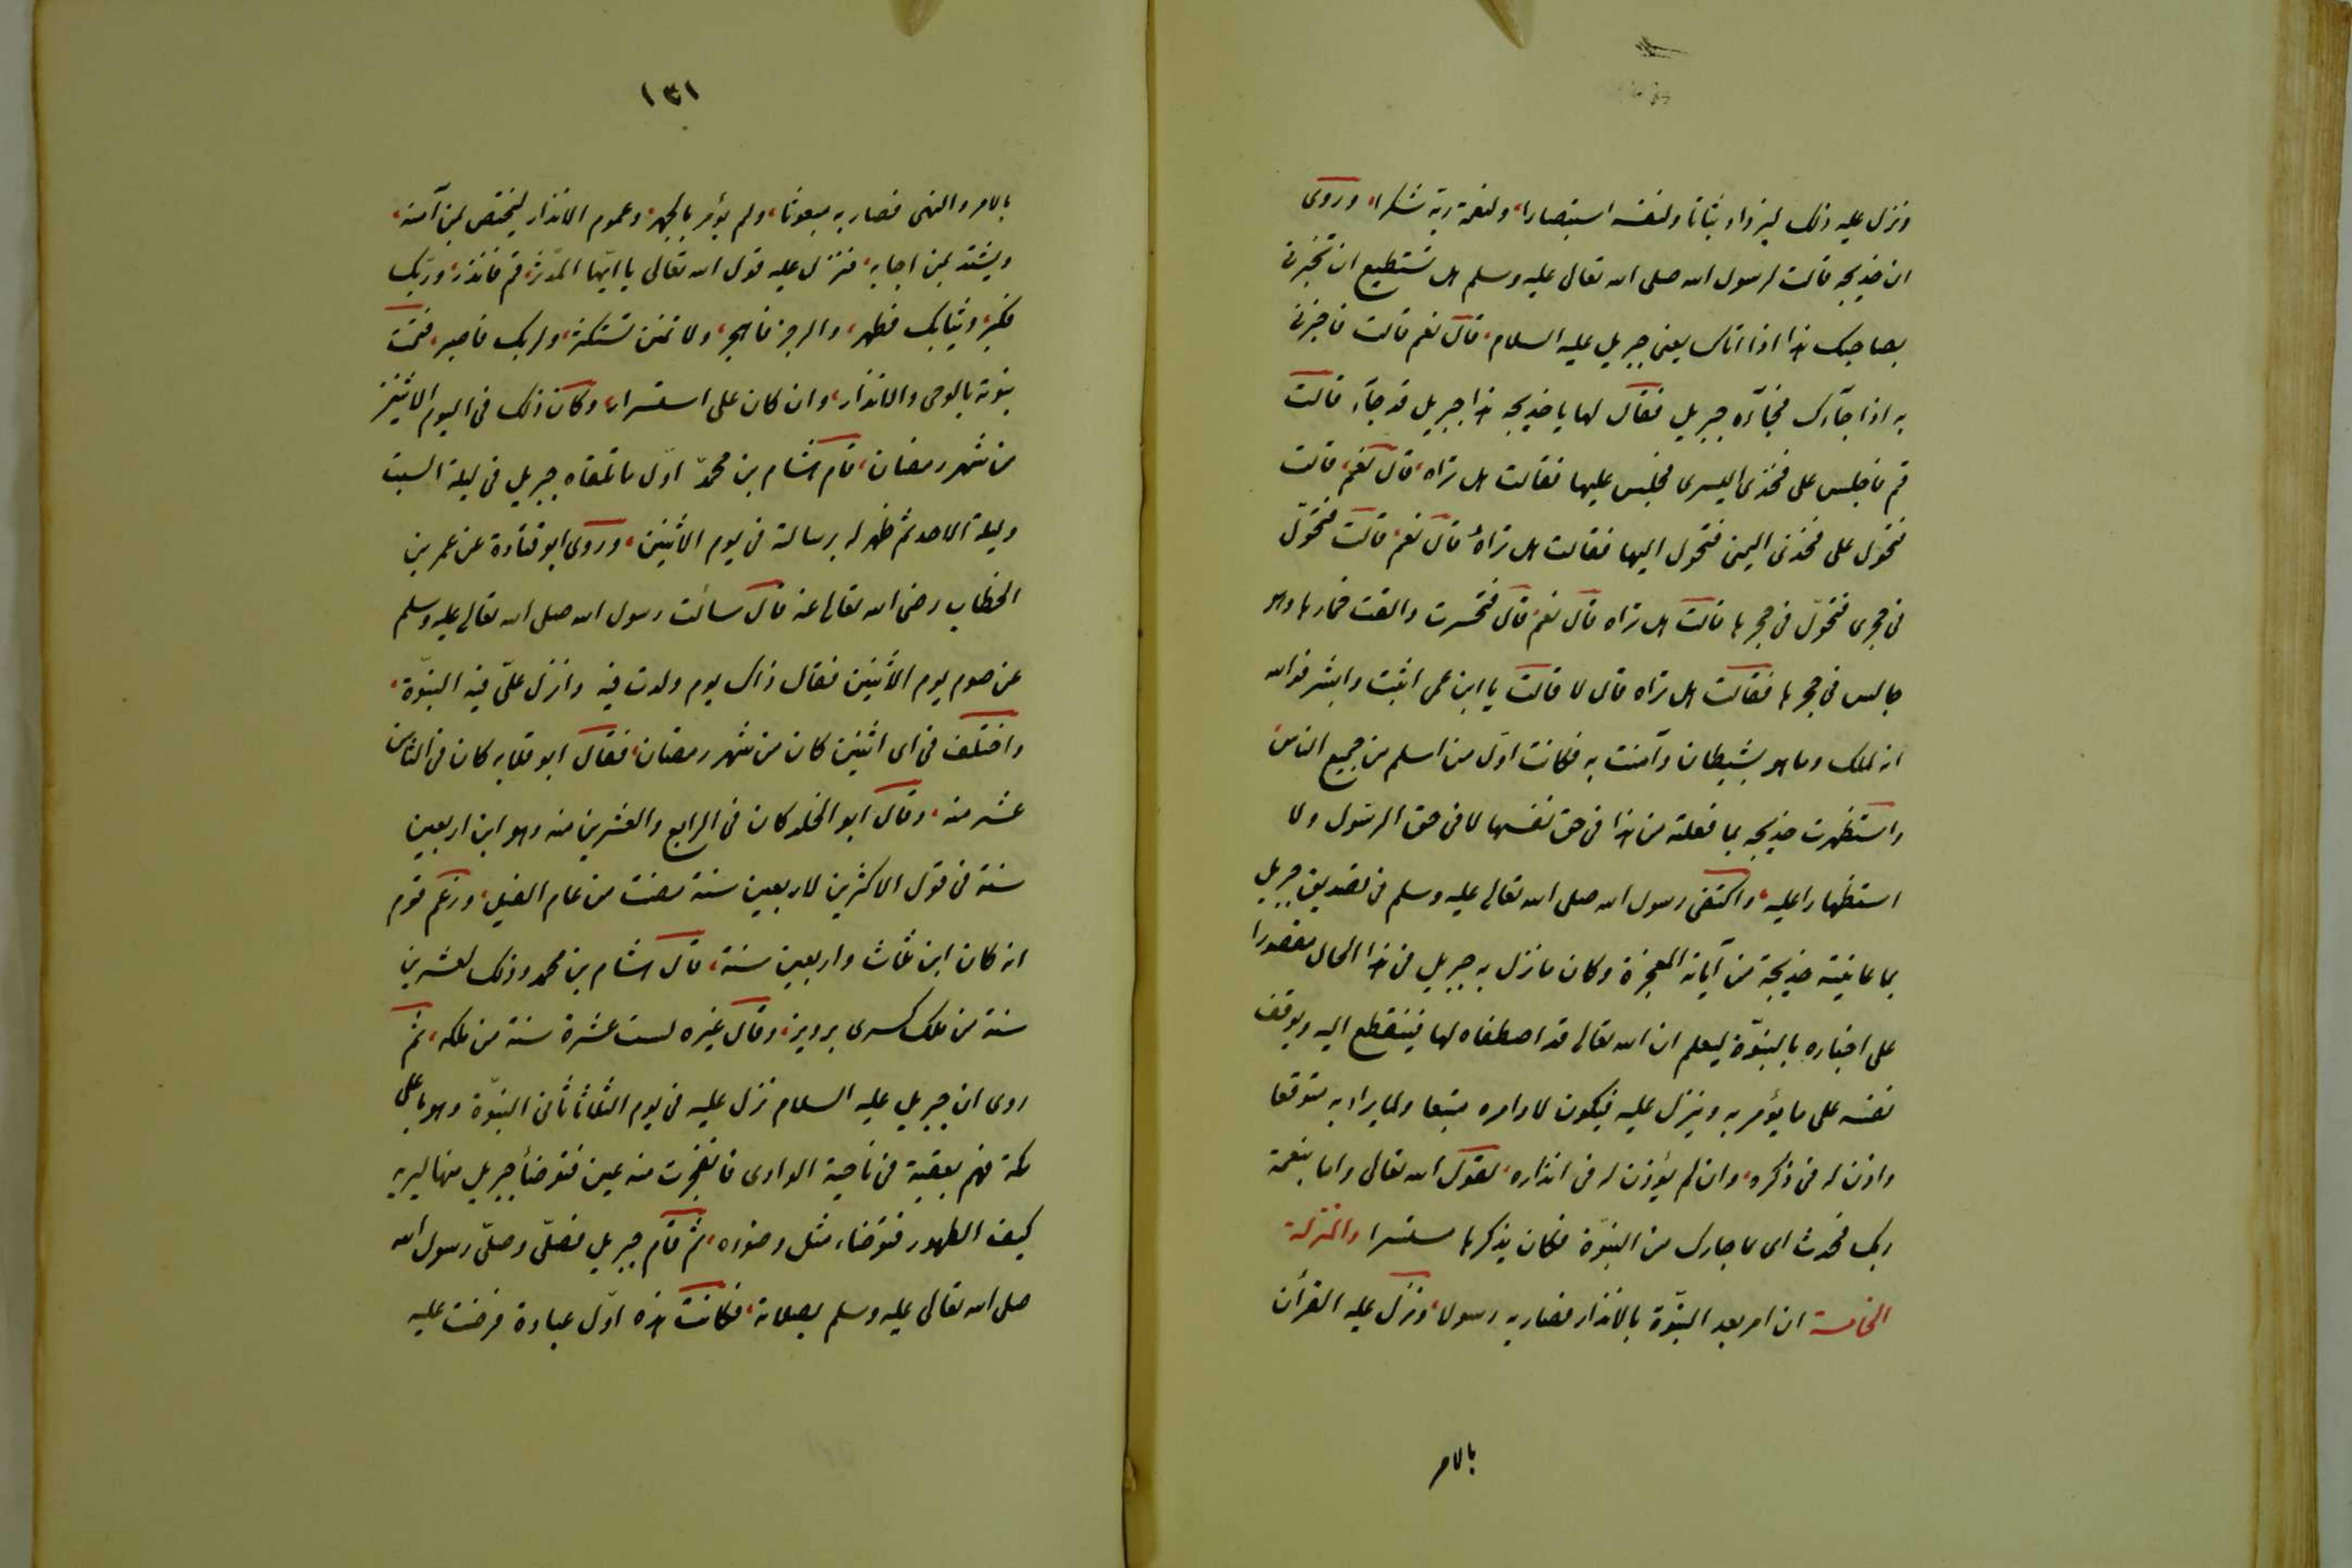 ونزل عليه ذلك ليزداد ثباتا ولنفسه استبصارا، ولنعمة ربه شكرا، وروى
ان خديجه قالت لرسول الله صلى الله تعالى عليه وسلم هل تستطيع ان تخبرنى
بصاحبك هذا اذا اتاك يعنى جبريل عليه السلام، قال نعم قالت فاخبرنى
به اذا جآءك فجآءه جبريل فقال لها يا خديجه هذا جبريل قد جآء قالت
قم فاجلس على فخذى اليسرى فجلس عليها فقالت هل تراه، قال نعم، قالت
فتحول على فخذى اليمن فتحول اليها فقالت هل تراه قال نعم، قالت فتحوّل
فى حجرى فتحوّل فى حجرها قالت هل تراه قال نعم قال فتحسرت والقت خمارها وهو
جالس فى حجرها فقالت هل تراه قال لا قالت يا ابن عمى اثبت وابشر فوالله
انه لملك وما هو بشيطان وآمنت به فكانت اوّل من اسلم من جميع الناس،
واستظهرت خديجه بما فعلته من هذا فى حق نفسها لا فى حق الرسول ولا
استظهارا عليه، واكتفى رسول الله صلى الله تعالى عليه وسلم فى تصديق جبريل
بما عاينته خديجة من آياته المعجزة وكان ما نزل به جبريل فى هذا الحال مقصورا
على اخباره بالنبوّة ليعلم ان الله تعالى قد اصطفاه لها فينقطع اليه ويوقف
نفسه على ما يؤمر به وينزل عليه فيكون لاوامره متبعا ولما يراد به متوقعا
واذن له فى ذكره، وان لم يؤذن له فى انذاره، لقول الله تعالى واما بنعمة
ربك فحدث اى ما جاءك من النبوّة فكان يذكرها مستسرا والمنزلة
الخامسة ان امر بعد النبوّة بالانذار فصار به رسولا، ونزل عليه القرأن
بالامر
١٣١
بالامر والنهى فصار به مبعوثا، ولم يؤمر بالجهر، وعموم الانذار ليختص بمن آمنه،
ويشتد بمن اجابه، فنزل عليه قول الله تعالى يا ايّها المدّثر، قم فانذر، وربّك
فكبر، وثيابك فطهر، والرجز فاهجر، ولا تمنن تستكثر، ولربك فاصبر، فتمت
نبوته بالوحى والانذار، وان كان على استسرار، وكان ذلك فى اليوم الاثنين
من شهر رمضان، قام هشام بن محمدّ اوّل ما تلقاه جبريل فى ليلة السبت
وليلة الاحد ثم ظهر له برسالته فى يوم الاثنين، وروى ابو قتادة عن عمر بن
الخطاب رضى الله تعالى عنه قال سائلت رسول الله صلى الله تعالى عليه وسلم
عن صوم يوم الاثنين فقال ذاك يوم ولدت فيه وانزل علىّ فيه النبوّة،
واختلف فى اى اثنين كان من شهر رمضان، فقال ابو قلابه كان فى الثامن
عشر منه، وقال ابو الخلد كان فى الرابع والعشرين منه وهو ابن اربعين
سنة فى قول الاكثرين لاربعين سنة مضت من عام الفيل، وزعم قوم
انه كان ابن ثلاث واربعين سنة، قال هشام بن محمد وذلك لعشرين
سنة من ملك كسرى برويز، وقال غيره لست عشرة سنة من ملكه، ثم
روى ان جبريل عليه السلام نزل عليه فى يوم الثلاثا ثانى النبوّة وهو باعلى
مكة فهمز بعقبة فى ناحية الوادى فانفجرت منه عين فتوضأ جبريل منها ليريه
كيف الطهور فتوضاء مثل وضوءه، ثم قام جبريل فصلّى وصلّى رسول الله
صلى الله تعالى عليه وسلم بصلاته، فكانت هذه اوّل عبادة فرضت عليه